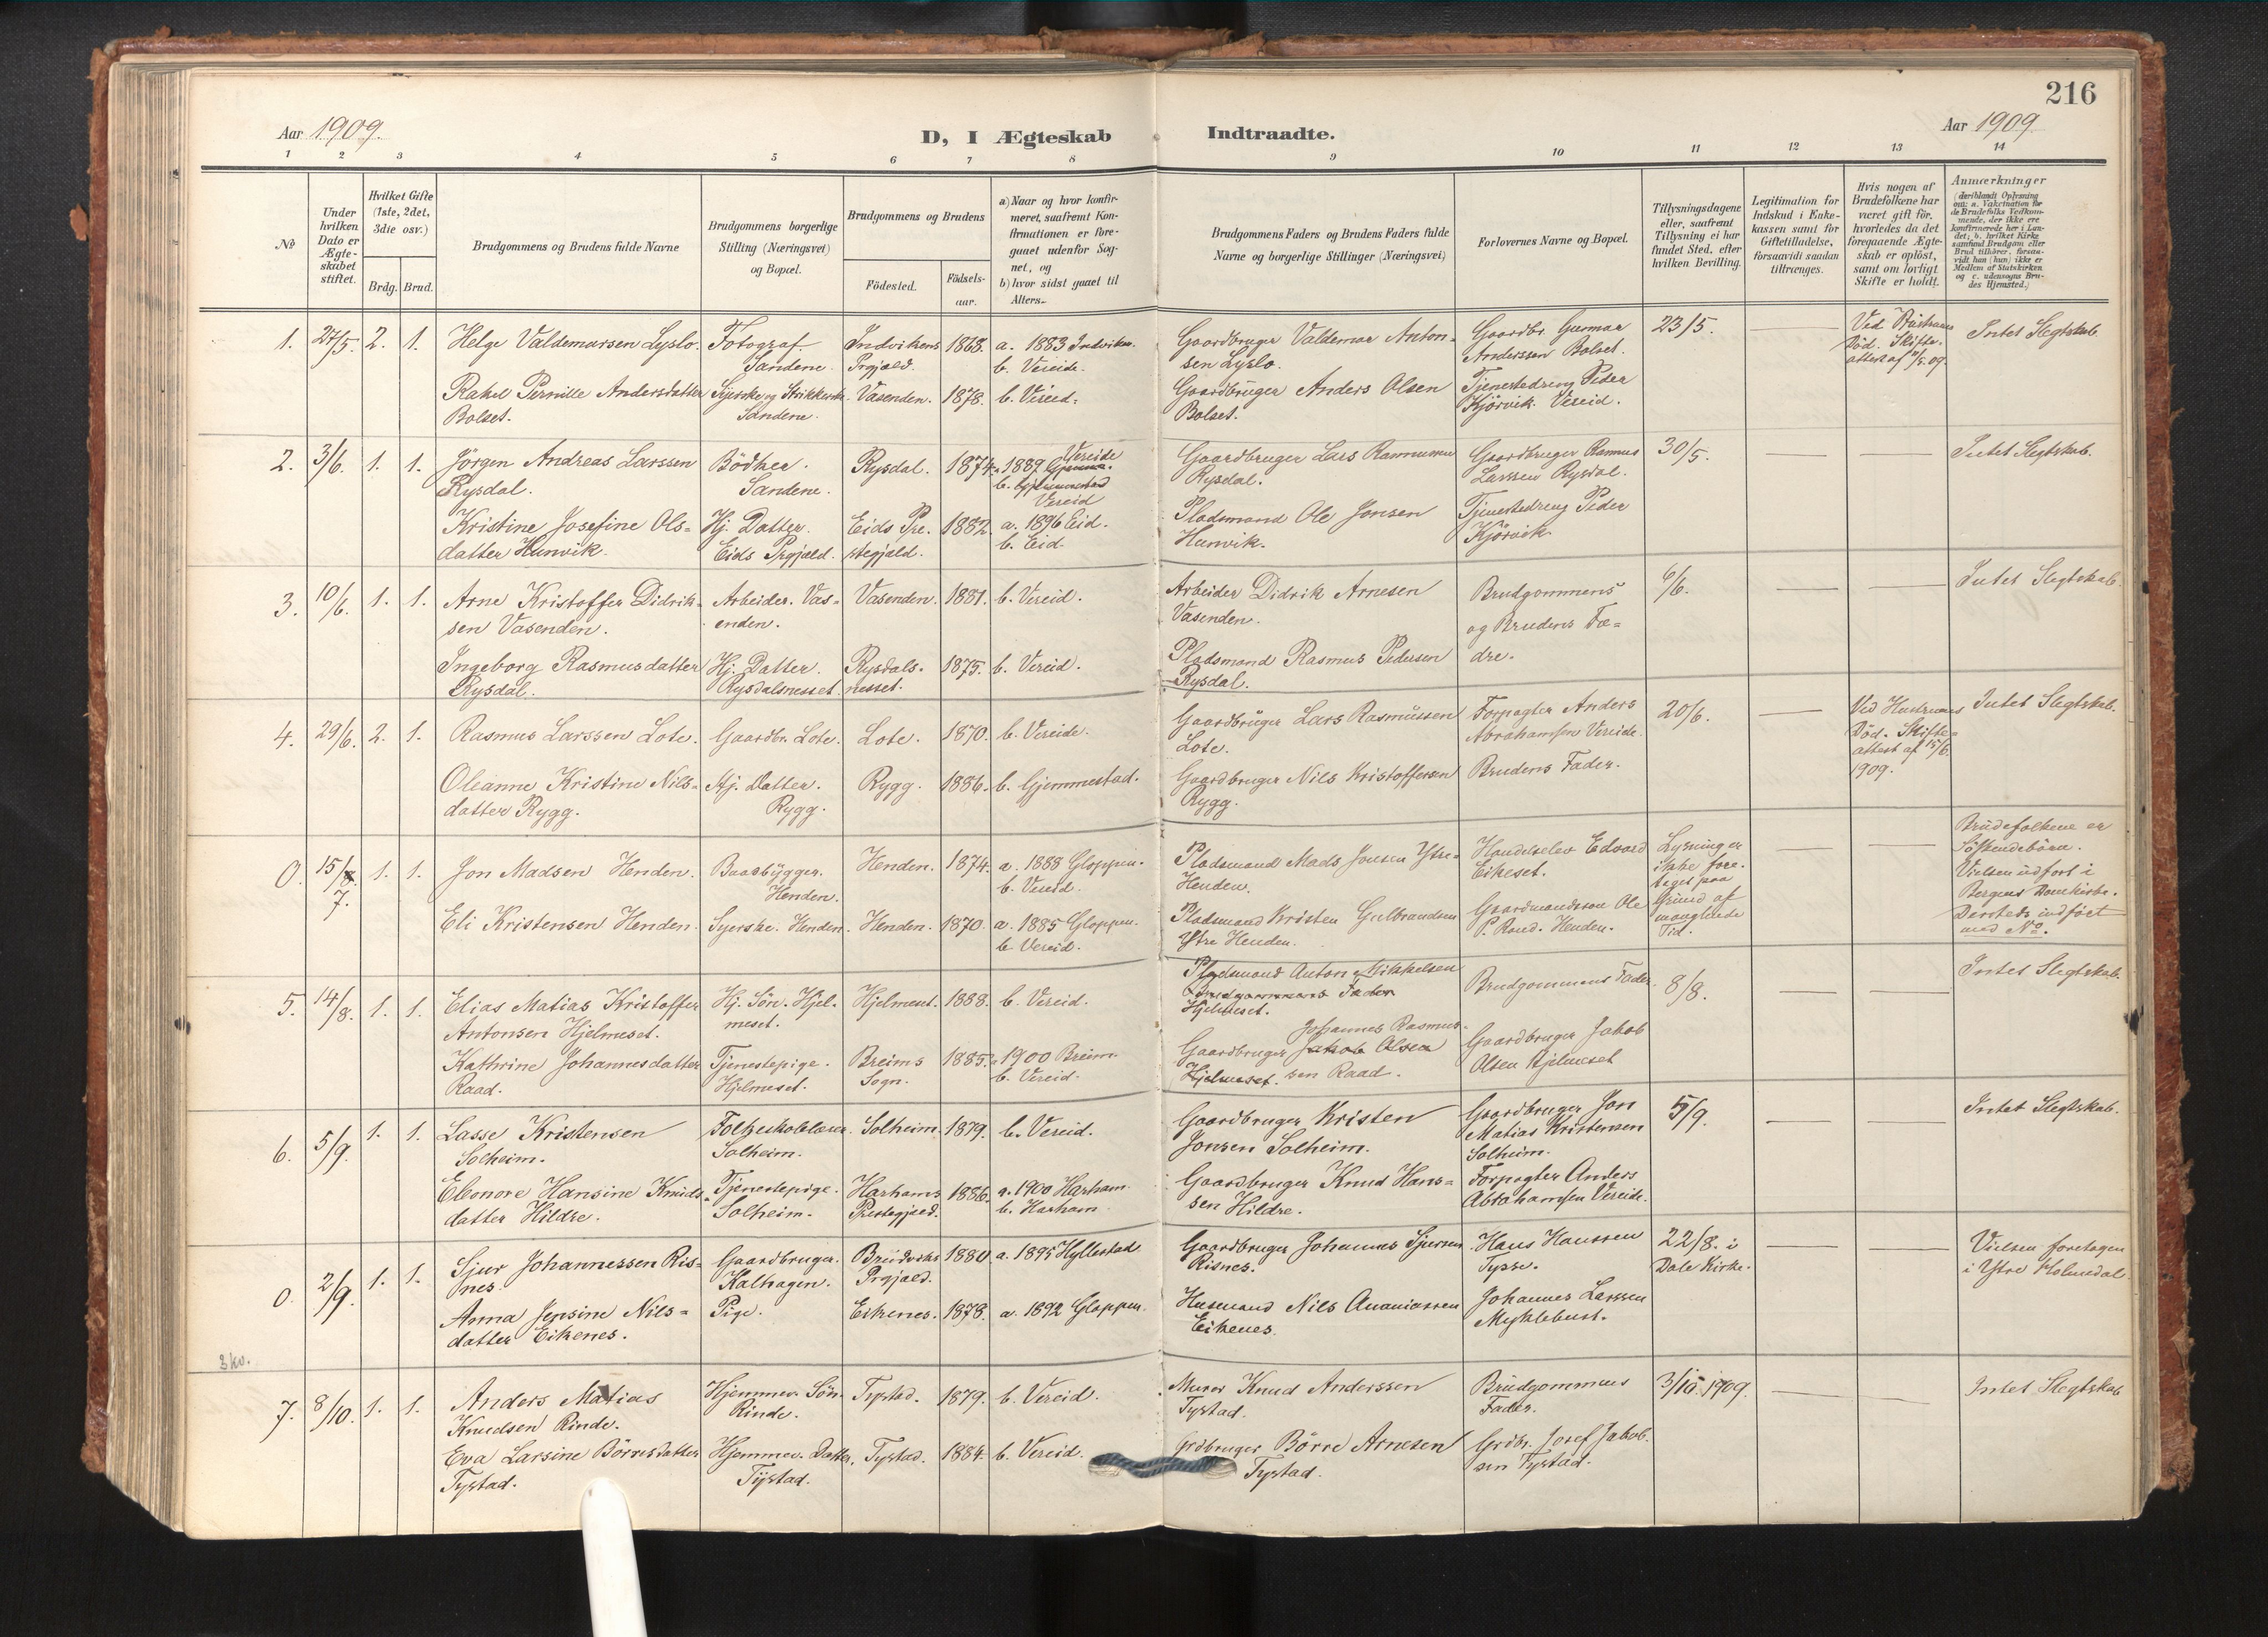 216
Aar 1909.
D, I Ægteskab Indtraadte.
Aar 1909
1 2 3 4 5 6 7 8 9 10 11 12 13 14
No
Under hvilken Dato er Ægteskabet stiftet.
Hvilket Gifte (1ste, 2det, 3die osv.)
Brdg. Brud.
Brudgommens og Brudens fulde Navne
Brudgommens borgerlige Stilling (Næringsvei) og Bopæl.
Brudgommens og Brudens
Födested.
Födsels-aar.
a) Naar og hvor konfirmeret, saafremt Konfirmationen er foregaaet udenfor Sognet, og
b) hvor sidst gaaet til Alters.
Brudgommens Faders og Brudens Faders fulde Navne og borgerlige Stillinger (Næringsvei)
Forlovernes Navne og Bopæl.
Tillysningsdagene eller, saafremt Tillysning ei har fundet Sted, efter hvilken Bevilling.
Legitimation for Indskud i Enkekassen samt for Giftetilladelse, forsaavidt saadan tiltrænges.
Hvis nogen af Brudefolkene har været gift før, hvorledes da det foregaaende Ægteskab er oplöst, samt om lovligt Skifte er holdt.
Anmærkninger
(deriblandt Oplysning om: a. Vakcination for de Brudefolks Vedkommende, der ikke ere konfirmerede her i Landet; b. hvilket Kirkesamfund Brudgom eller Brud tilhörer, forsaavidt han (hun) ikke er Medlem af Statskirken og c. udensogns Brudes Hjemsted.)
1. 27/5. 2. 1. Helge Valdemarsen Lyslo. Fotograf Sandene. Indvikens Prgjæld. 1868. a. 1883 Indviken. b. Vereide. Gaardbruger Valdemar Antonsen Lyslo. Gaardbr. Gunnar Anderssen Bolset. 23/5. Ved Hustruens Död. Skifteattest af Intet Slegtskab.
Rakel Pernille Andersdatter Bolset. Syerske og Strikkerske Sandene. Vasenden. 1878. b. Vereid. Gaardbruger Anders Olsen Bolset. Tjenestedreng Peder Kjörvik. Vereid.
2. 3/6. 1. 1. Jörgen Andreas Larssen Rysdal. Bödker. Sandene. Rysdal. 1874. a. 1889 Vereide b. Gjemmestad Vereid Gaardbruger Lars Rasmussen Rysdal. Gaardbruger Rasmus Larssen Rysdal. 30/5. Intet Slegtskab.
Kristine Josefine Olsdatter Hunvik. Hj. Datter. Eids Prgjæld. Eids Prestegjæld. 1882. a. 1896 Eid. b. Eid. Pladsmand Ole Jonsen Hunvik. Tjenestedreng Peder Kjörvik.
3. 10/6. 1. 1. Arne Kristoffer Didriksen Vasenden. Arbeider. Vasenden. Vasenden. 1881. b. Vereid. Arbeider Didrik Arnesen Vasenden. Brudgommens og Brudens Fædre. 6/6. Intet Slegtskab.
Ingeborg Rasmusdatter Rysdal. Hj. Datter. Rysdalsnesset. Rysdalsnesset. 1875. b. Vereid. Pladsmand Rasmus Pedersen Rysdal.
4. 29/6. 2. 1. Rasmus Larssen Lote. Gaardbr. Lote. Lote. 1870. b. Vereide. Gaardbruger Lars Rasmussen Lote. Forpagter Anders Abrahamsen Vereide. 20/6. Ved Hustruens Död. Skifteattest af 15/6. 1909. Intet Slegtskab.
Oleanne Kristine Nilsdatter Rygg. Hj. Datter. Rygg. Rygg. 1886. b. Gjemmestad. Gaardbruger Nils Kristoffersen Rygg. Brudens Fader.
0. 15/8. 7. 1. 1. Jon Madsen Henden. Baadbygger. Henden. Henden. 1874. a. 1888 Gloppen. b. Vereid. Pladsmand Mads Jonsen Ytre Henden. Handelselev Edvard Eikeset. Lysning er ikke foretaget paa Grund af manglende Tid. Brudefolkene er Söskendebörn. Vielsen udfört i Bergens Domkirke. Dersteds indfört med No.
Eli Kristensen Henden. Syerske. Henden. Henden. 1870. a. 1885 Gloppen. b. Vereid. Pladsmand Kristen Gulbrandsen Ytre Henden. Gaardmandssön Ole P. Rand. Henden.
5. 14/8. 1. 1. Elias Matias Kristoffer Antonsen Hjelmeset. Hj. Sön. Hjelmeset. Hjelmeset. 1888. b. Vereid. Pladsmand Anton Mikkelsen Brudgommens Fader Hjelmeset. Brudgommens Fader. 8/8. Intet Slegtskab.
Kathrine Johannesdatter Raad. Tjenestepige. Hjelmeset. Breims Sogn. 1885. a. 1900 Breim. b. Vereid. Gaardbruger Jakob Olsen Hjelmeset. Johannes Rasmussen Raad. Gaardbruger Jakob Olsen Hjelmeset
6. 5/9. 1. 1. Lasse Kristensen Solheim. Folkeskolelærer. Solheim. Solheim. 1879. b. Vereid. Gaardbruger Kristen Jonsen Solheim. Gaardbruger Jon Matias Kristensen Solheim. 5/9. Intet Slegtskab.
Eleonore Hansine Knudsdatter Hildre. Tjenestepige. Solheim. Harhams Prestegjæld. 1886. a. 1900 Harham. b. Harham. Gaardbruger Knud Hansen Hildre. Forpagter Anders Abrahamsen Vereide.
0. 2/9. 1. 1. Sjur Johannessen Risnes. Gaardbruger. Kalhagen. Prgjæld. 1880. a. 1895 Hyllestad Gaardbruger Johannes Sjursen Risnes. Hans Hanssen Tysse. 22/8. i Dale Kirke. Vielsen foretagen i Ytre Holmedal.
Anna Jensine Nilsdatter Eikenes. Pige. Eikenes. 1878. a. 1892 Gloppen. Husmand Nils Ananiassen Eikenes. Johannes Larssen Myklebust.
3 kv.
7. 8/10. 1. 1. Anders Matias Knudsen Rinde. Hjemmev. Sön. Rinde. Tystad. 1879. b. Vereid. Murer Knud Anderssen Tystad. Brudgommens Fader. 3/10. 1909. Intet Slegtskab
Eva Larsine Börresdatter Tystad. Hjemmev. Datter. Tystad. Tystad. 1884. b. Vereid. Grdbruger Börre Arnesen Tystad. Grdbr. Josef Jakobsen Tystad.